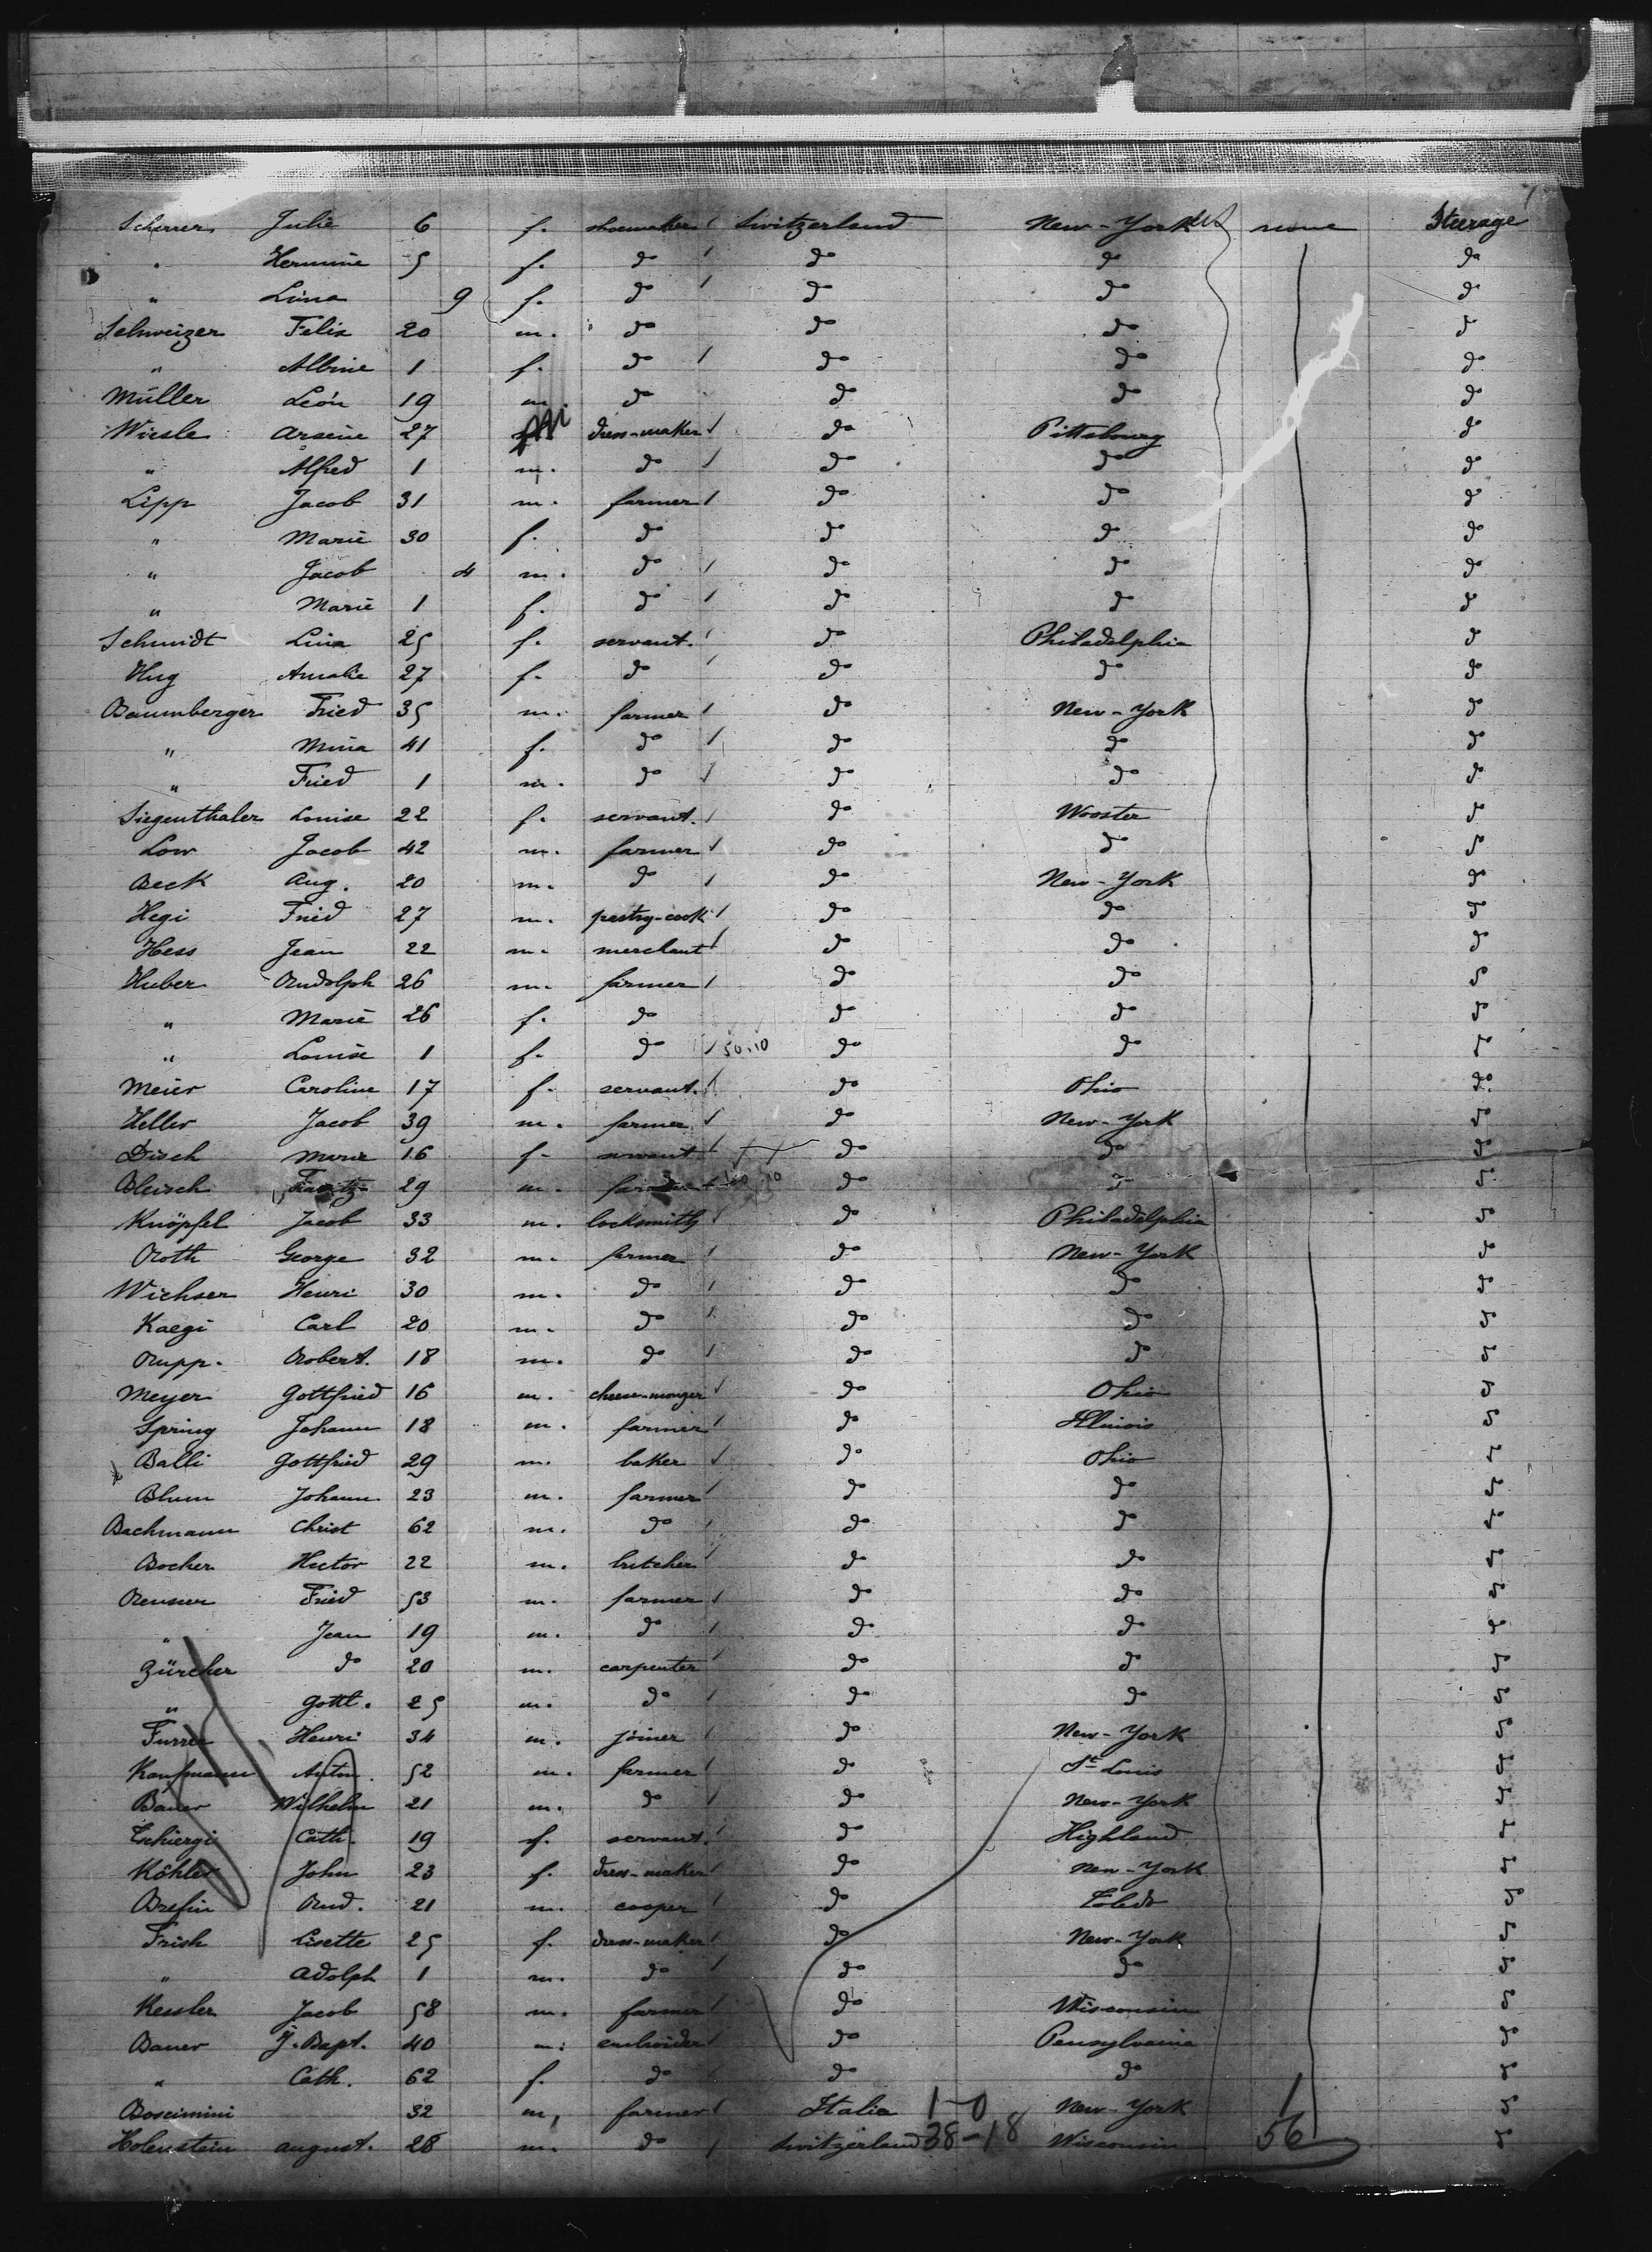 Scherrer Julie 6 f. shoemaker Switzerland New-York none Steerage
" Hermine 5 f. do do do do
" Lina 9 f. do do do do
Schweizer Felix 20 m. do do do do
" Albine 1 f. do do do do
Müller Léon 19 m. do do do do
Wiesle Arsène 27 dress-maker do Pittsbourg do
" Alfred 1 m. do do do do
Lipp Jacob 31 m. farmer do do do
" Marie 30 f. do do do do
" Jacob 4 m. do do do do
" Marie 1 f. do do do do
Schmidt Lina 25 f. servant. do Philadelphia do
Hug Amalie 27 f. do do do do
Baumberger Fried 35 m. farmer do New-York do
" Mina 41 f. do do do do
" Fried 1 m. do do do do
Siegenthaler Louise 22 f. servant. do Wooster do
Low Jacob 42 m. farmer do do do
Beck Aug. 20 m. do do New-York do
Hegi Fried 27 m. pastry-cook do do do
Hess Jean 22 m. merchant do do do
Huber Rudolph 26 m. farmer do do do
" Marie 26 f. do do do do
" Louise 1 f. do do do do
Meier Caroline 17 f. servant. do Ohio do
Heller Jacob 39 m. farmer do New-York do
Disch Marie 16 f. servant do do do
Bleisch 29 m. do do do
Knöpfel Jacob 33 m. locksmith do Philadelphia do
Roth George 32 m. farmer do New-York do
Wichser Henri 30 m. do do do do
Kaegi Carl 20 m. do do do do
Rupp. Robert. 18 m. do do do do
Meyer Gottfried 16 m. cheese-monger do Ohio do
Spring Johann 18 m. farmer do Illinois do
Balli Gottfried 29 m. baker do Ohio do
Blum Johann 23 m. farmer do do do
Bachmann Christ 62 m. do do do do
Bocher Hector 22 m. butcher do do do
Renner Fried 53 m. farmer do do do
" Jean 19 m. do do do do
Zürcher do 20 m. carpenter do do do
" Gottl. 25 m. do do do do
Furrer Henri 34 m. joiner do New-York do
Kaufmann Anton. 52 m. farmer do St Louis do
Bauer Wilhelm 21 m. do do New-York do
Tschiergi Cath. 19 f. servant. do Highland do
Köhler John 23 f. dress-maker do New-York do
Rud. 21 m. cooper do Toledo do
Frish Lisette 25 f. dress-maker do New-York do
" Adolph 1 m. do do do do
Kessler Jacob 58 m. farmer do Wisconsin do
Bauer J. Bapt. 40 m. embroider do Pensylvania do
" Cath. 62 f. do do do do
Boscimini 32 m. farmer Italia 1-0 New-York 1 do
Holenstein August. 28 m. do Switzerland 38-18 Wisconsin 56 do